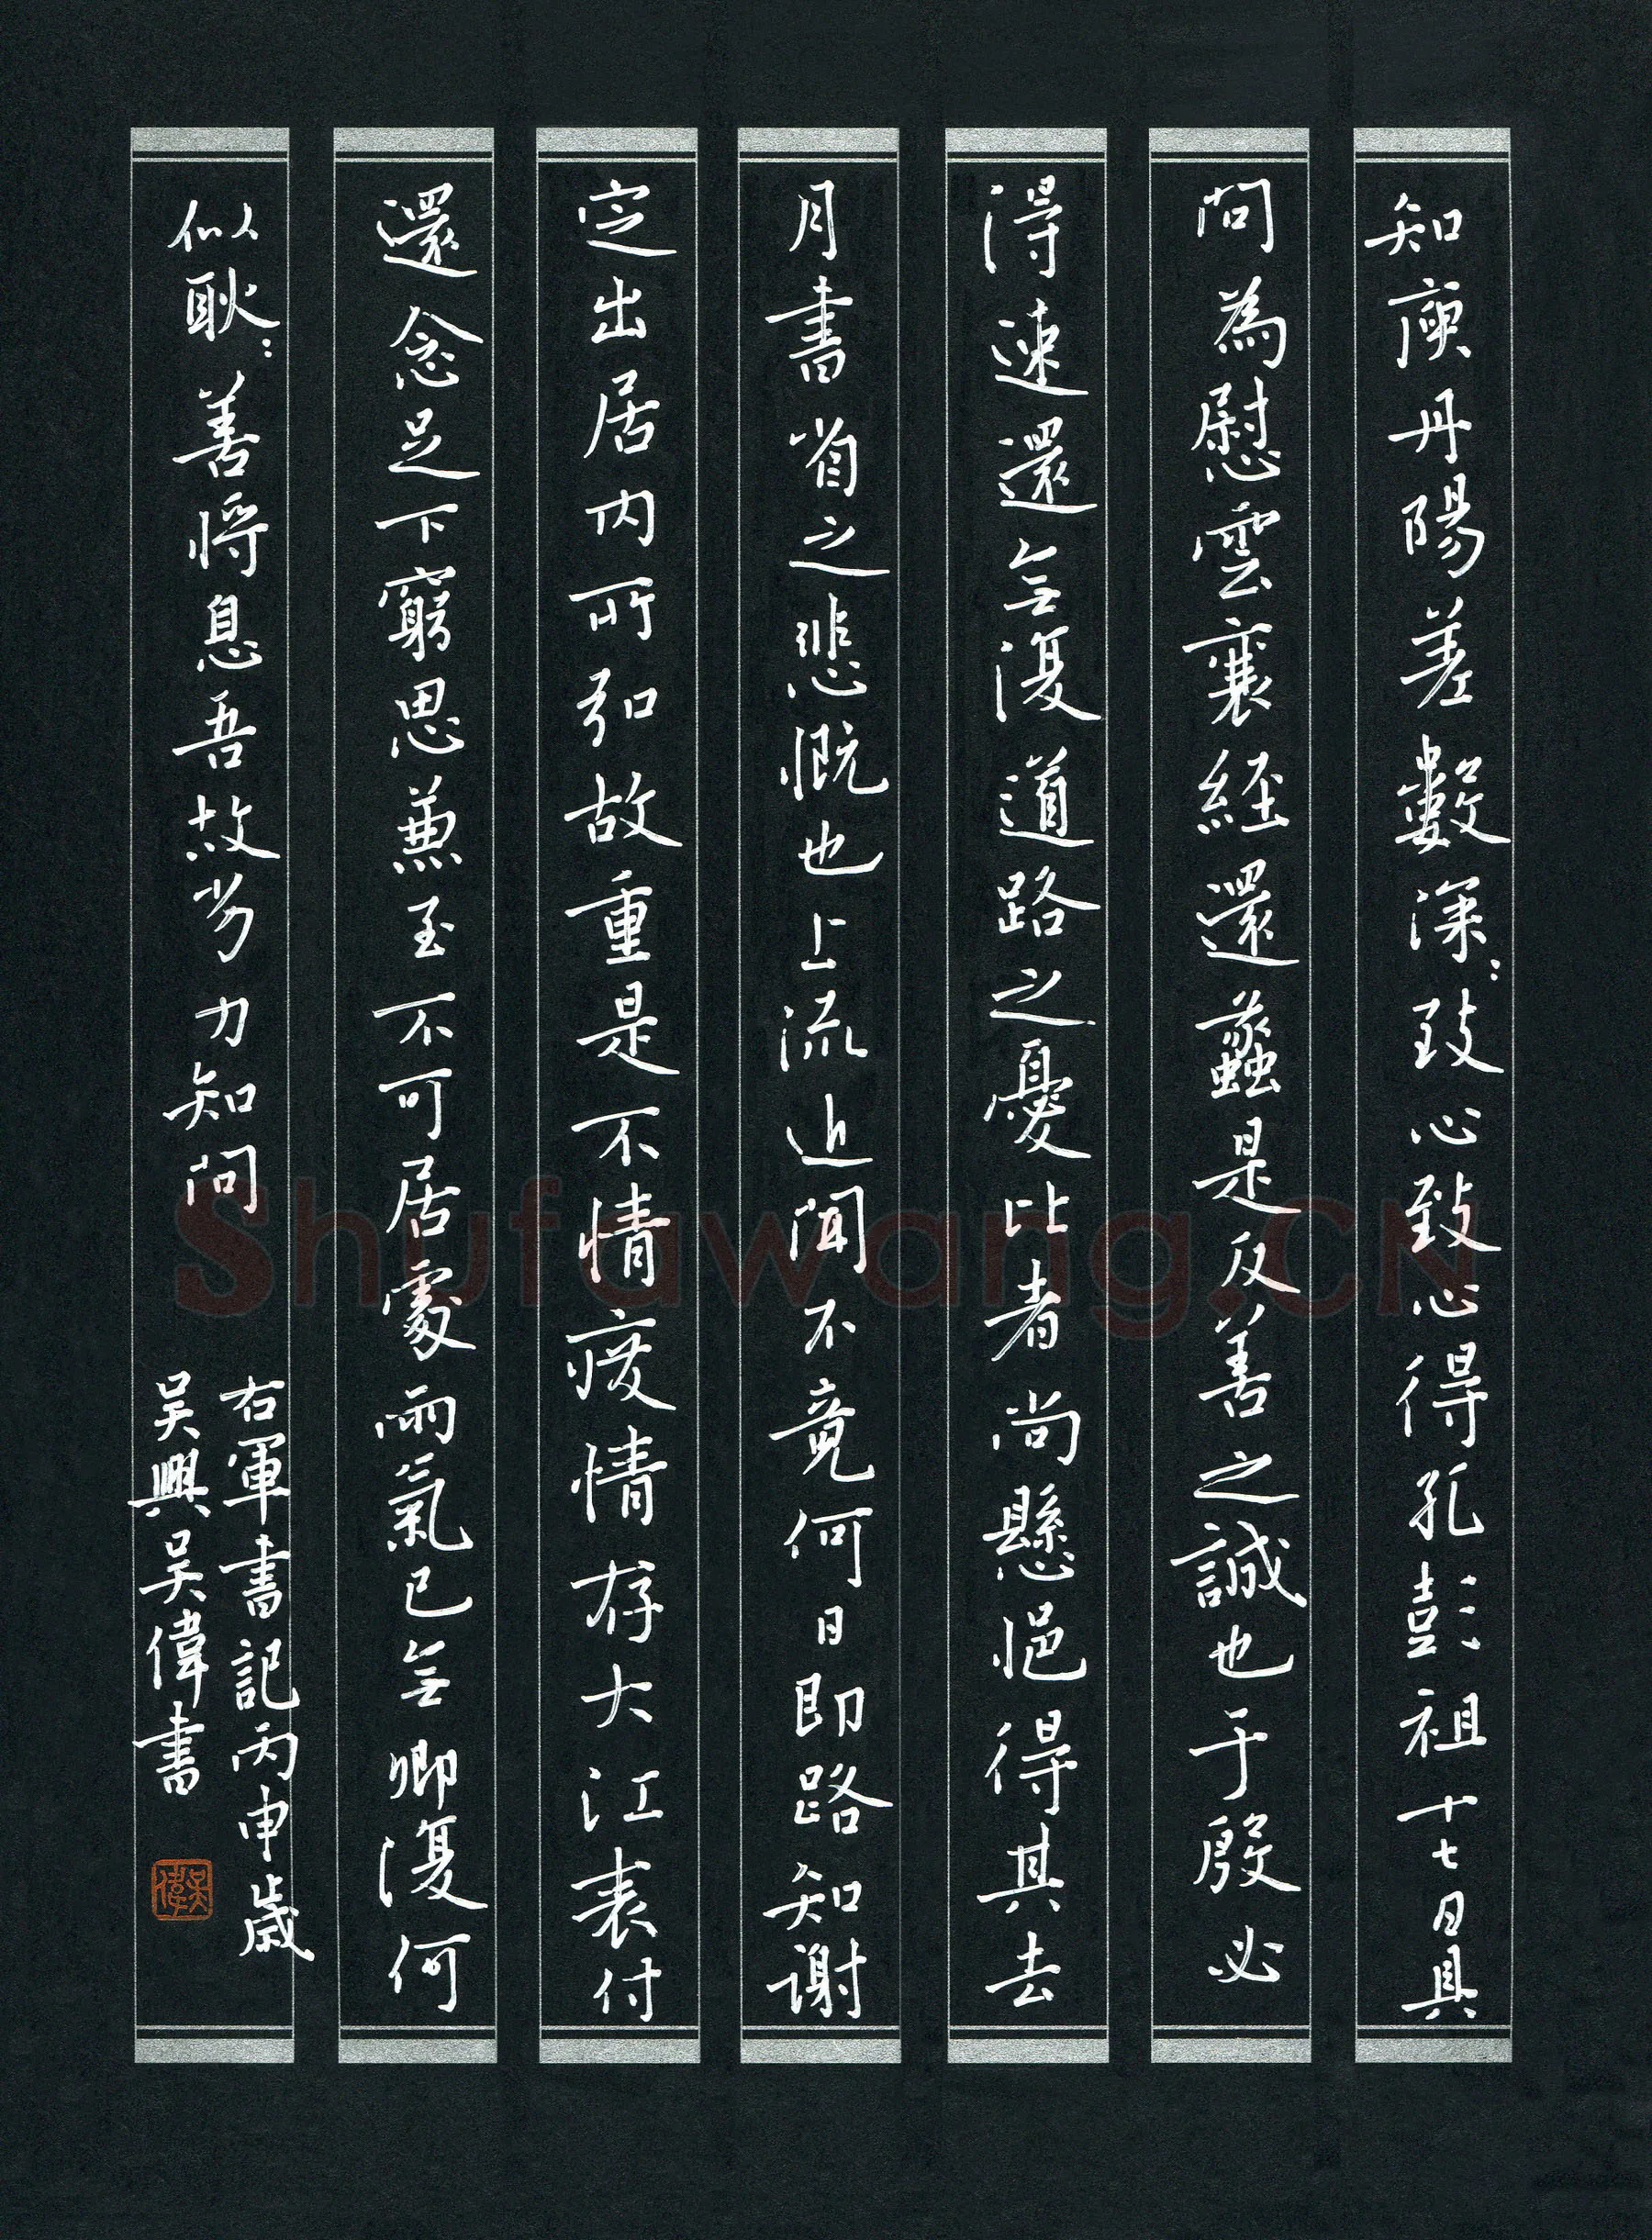 知庾丹陽差數深〻致心致心得孔彭祖十七日具
問為慰雲襄經還蠡是反善之誠也于殷必
得速還無復道路之憂比者尚懸悒得其去
月書省之悲慨也上流近聞不竟何日即路知謝
定出居内所弘故重是不情疲情存大江表付
還念足下窮思兼至不可居處雨氣已無卿復何
似耿〻善將息吾故劣力知問
右軍書記丙申歲
吴興吴偉書
吴偉
Shufawang.CN